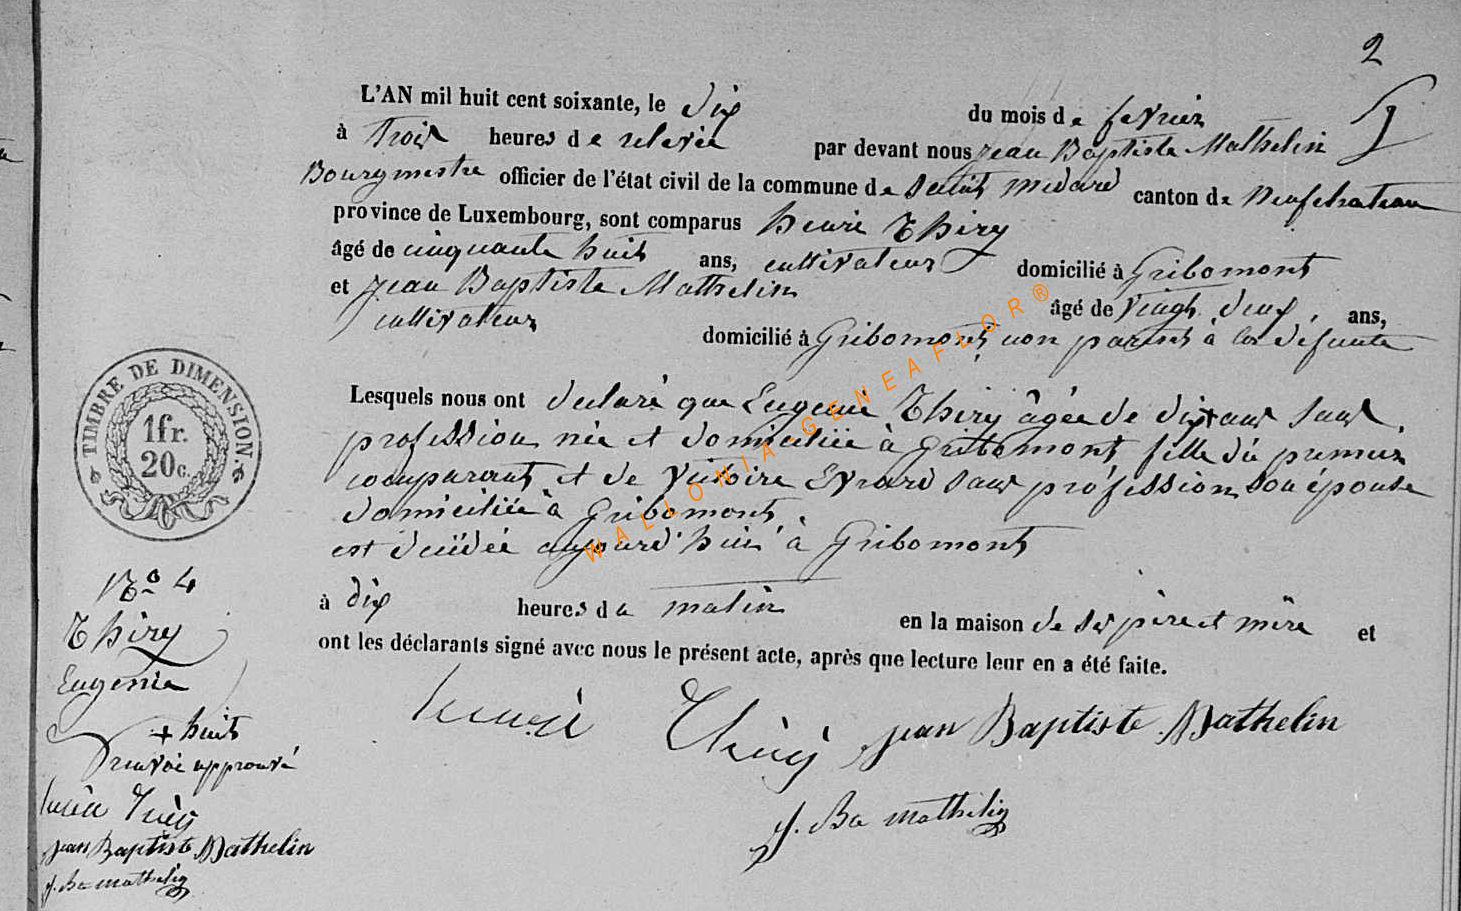 2
L'AN mil huit cent soixante, le dix du mois de fevrier
à trois heures de relevée par devant nous jean Baptiste Mathelin
Bourgmestre officier de l'état civil de la commune de saint medard canton de neufchateau
province de Luxembourg, sont comparus henri Thiry
âgé de cinquante huit ans, cultivateur domicilié à Gribomont
et jean Baptiste Mathelin âgé de vingt deux, ans,
cultivateur domicilié à Gribomont non parent à la défunte
Lesquels nous ont declaré que Eugenie Thiry âgée de dix+ans sans
profession née et domiciliée à Gribomont fille du premier
comparant et de Victoire Evrard sans profession son épouse
domiciliée à Gribomont.
est décédée aujourd'hui à Gribomont
à dix heures du matin en la maison de ses père et mère et
ont les déclarants signé avec nous le présent acte, après que lecture leur en a été faite.
henri Thiry jean Baptiste Mathelin
j. Ba mathelin
TIMBRE DE DIMENSION
1fr.
20c.
No 4
Thiry
Eugenie
+ huit
renvoi approuvé
henri Thiry
jean Baptiste Mathelin
j. Ba mathelin
WALLONIA GENEAFLOR®